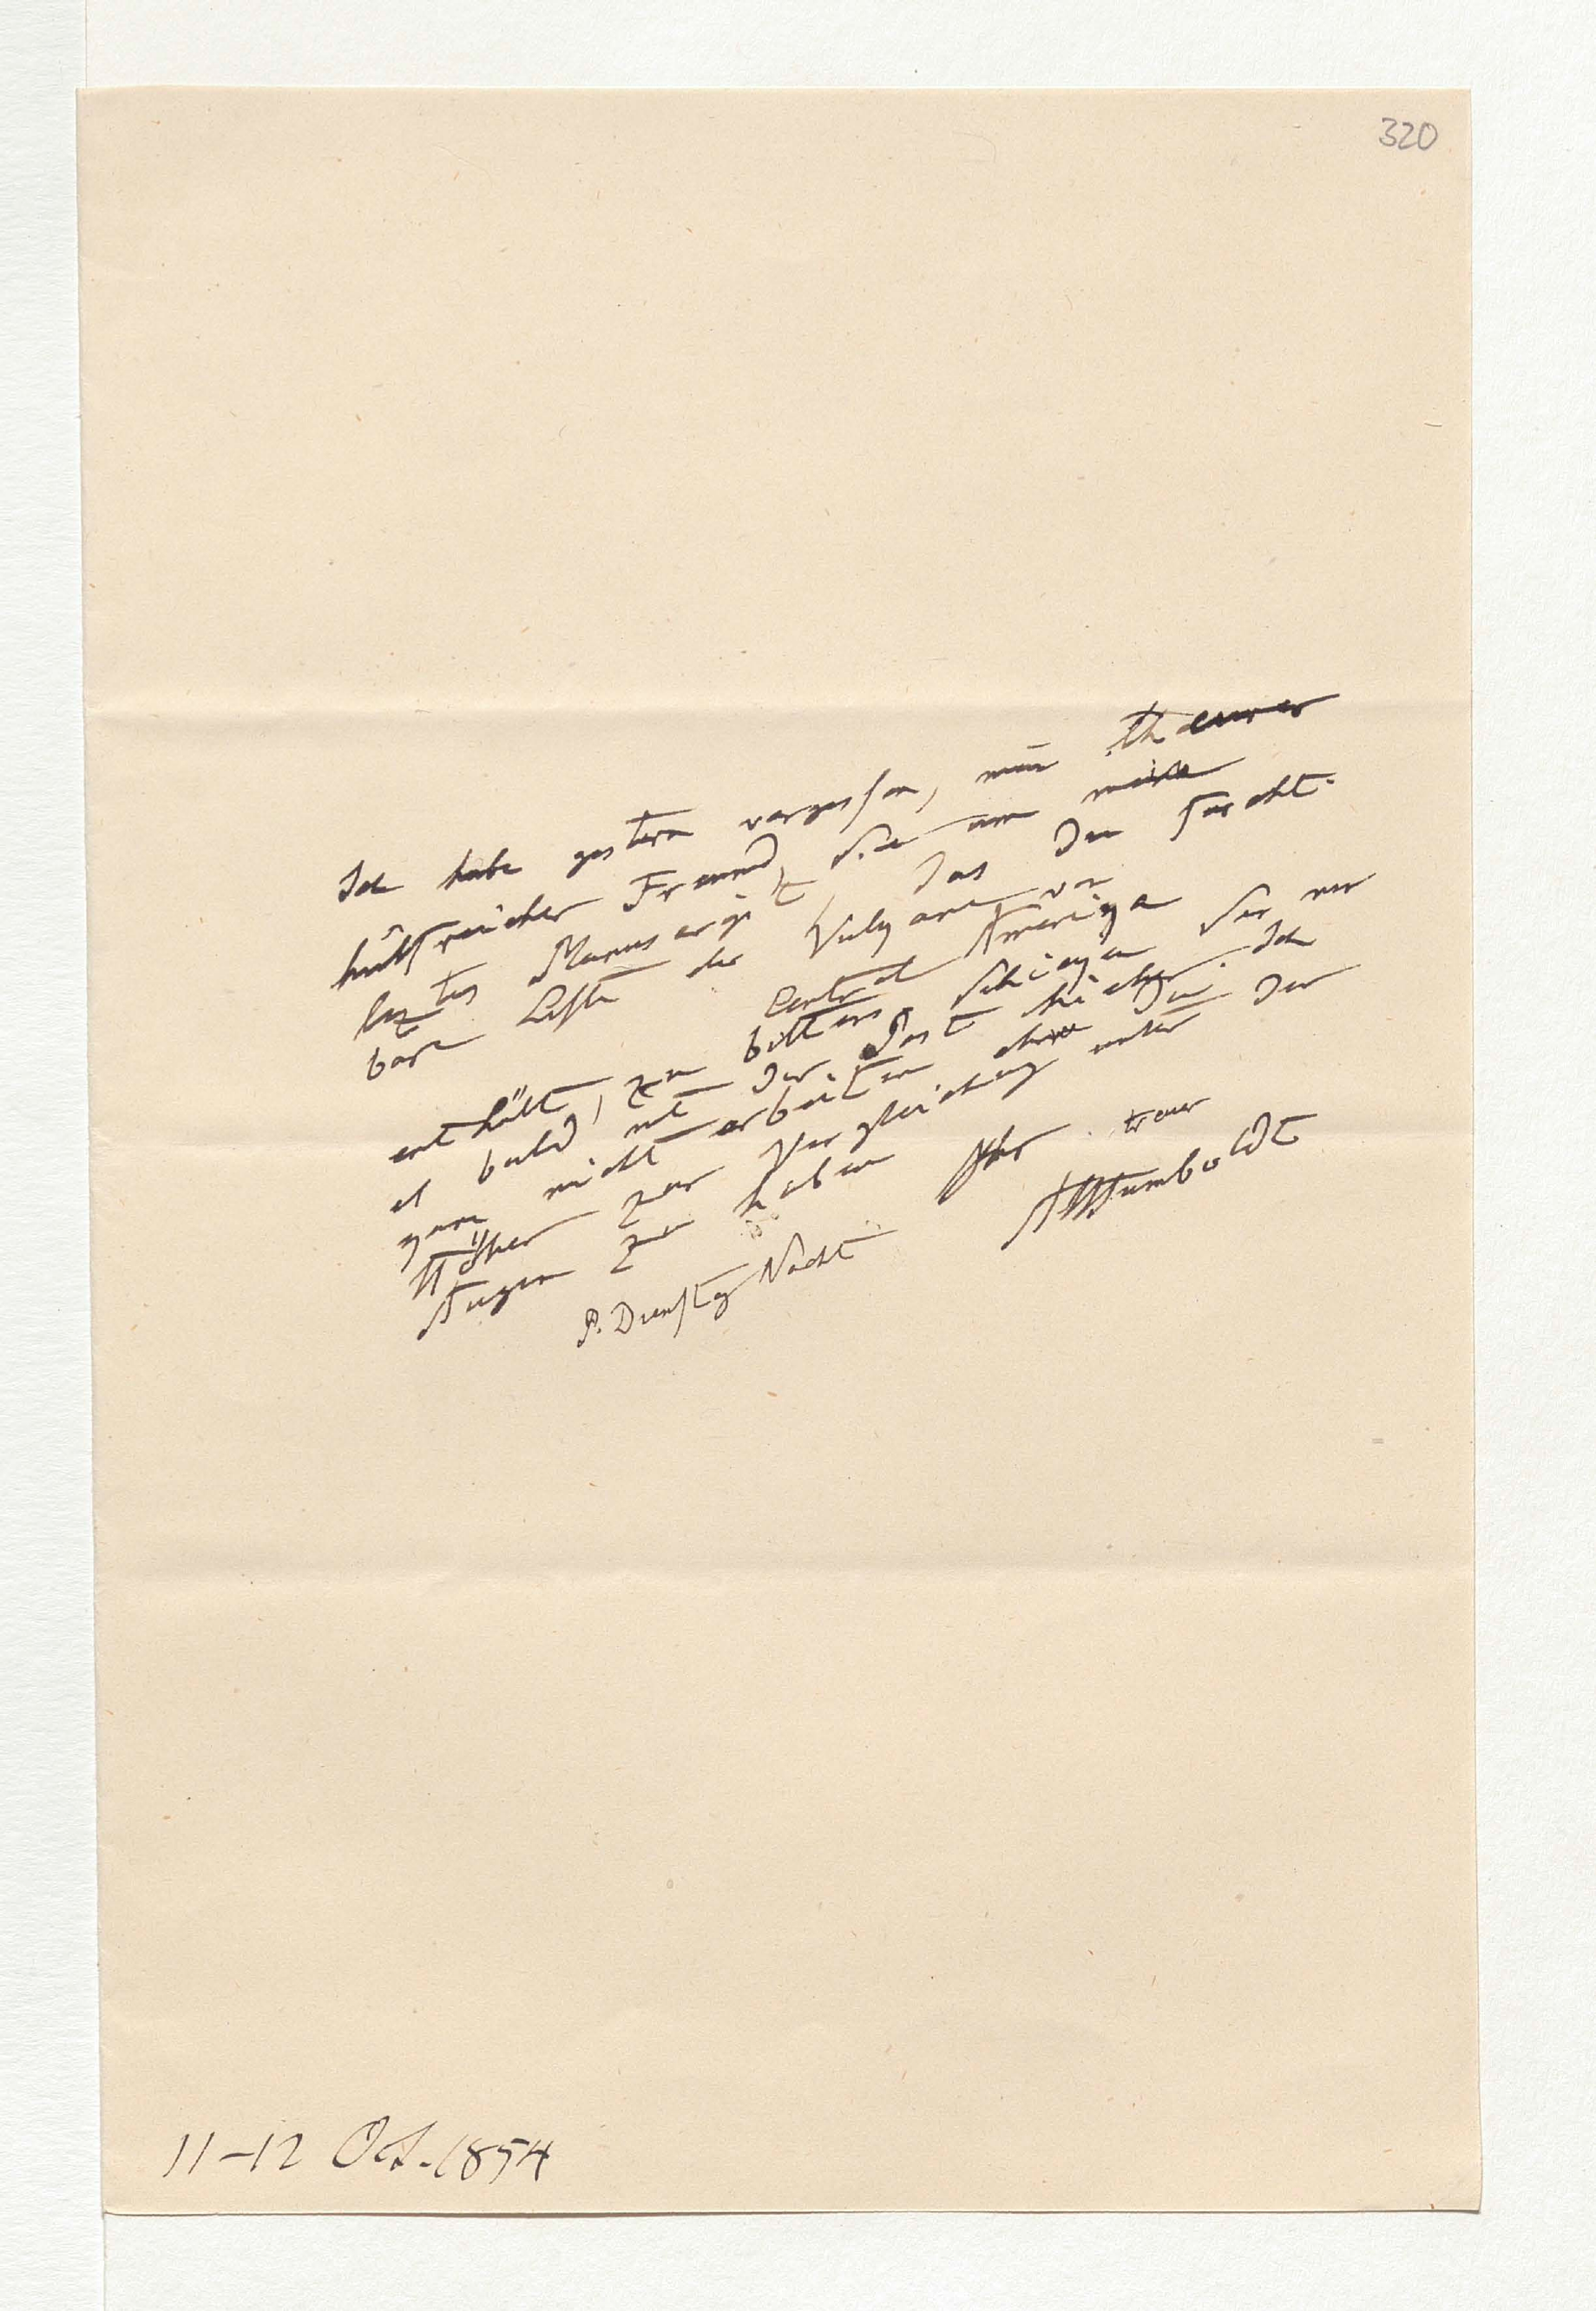 320
Ich habe gestern vergessen, mein theurer
hülfreicher Freund, Sie um mein
leztes Manuscript, das die furcht-
bare Liste der Vulkane von
Central Amerika
enthält, zu bitten. Schicken Sie mir
es bald mit der Post hieher. Ich
kann nicht arbeiten ohne die
zur Vergleichung unter den
Augen zu haben Ihr treuer
AvHumboldt
P. Dienstag Nacht
11–12 Oct. 1854